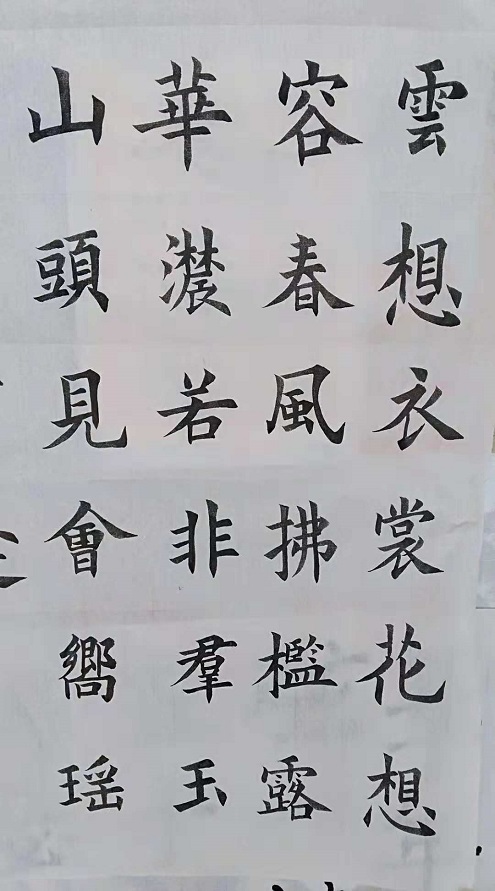 雲想衣裳花想
容春風拂檻露
華濃若非羣玉
山頭見會嚮瑶